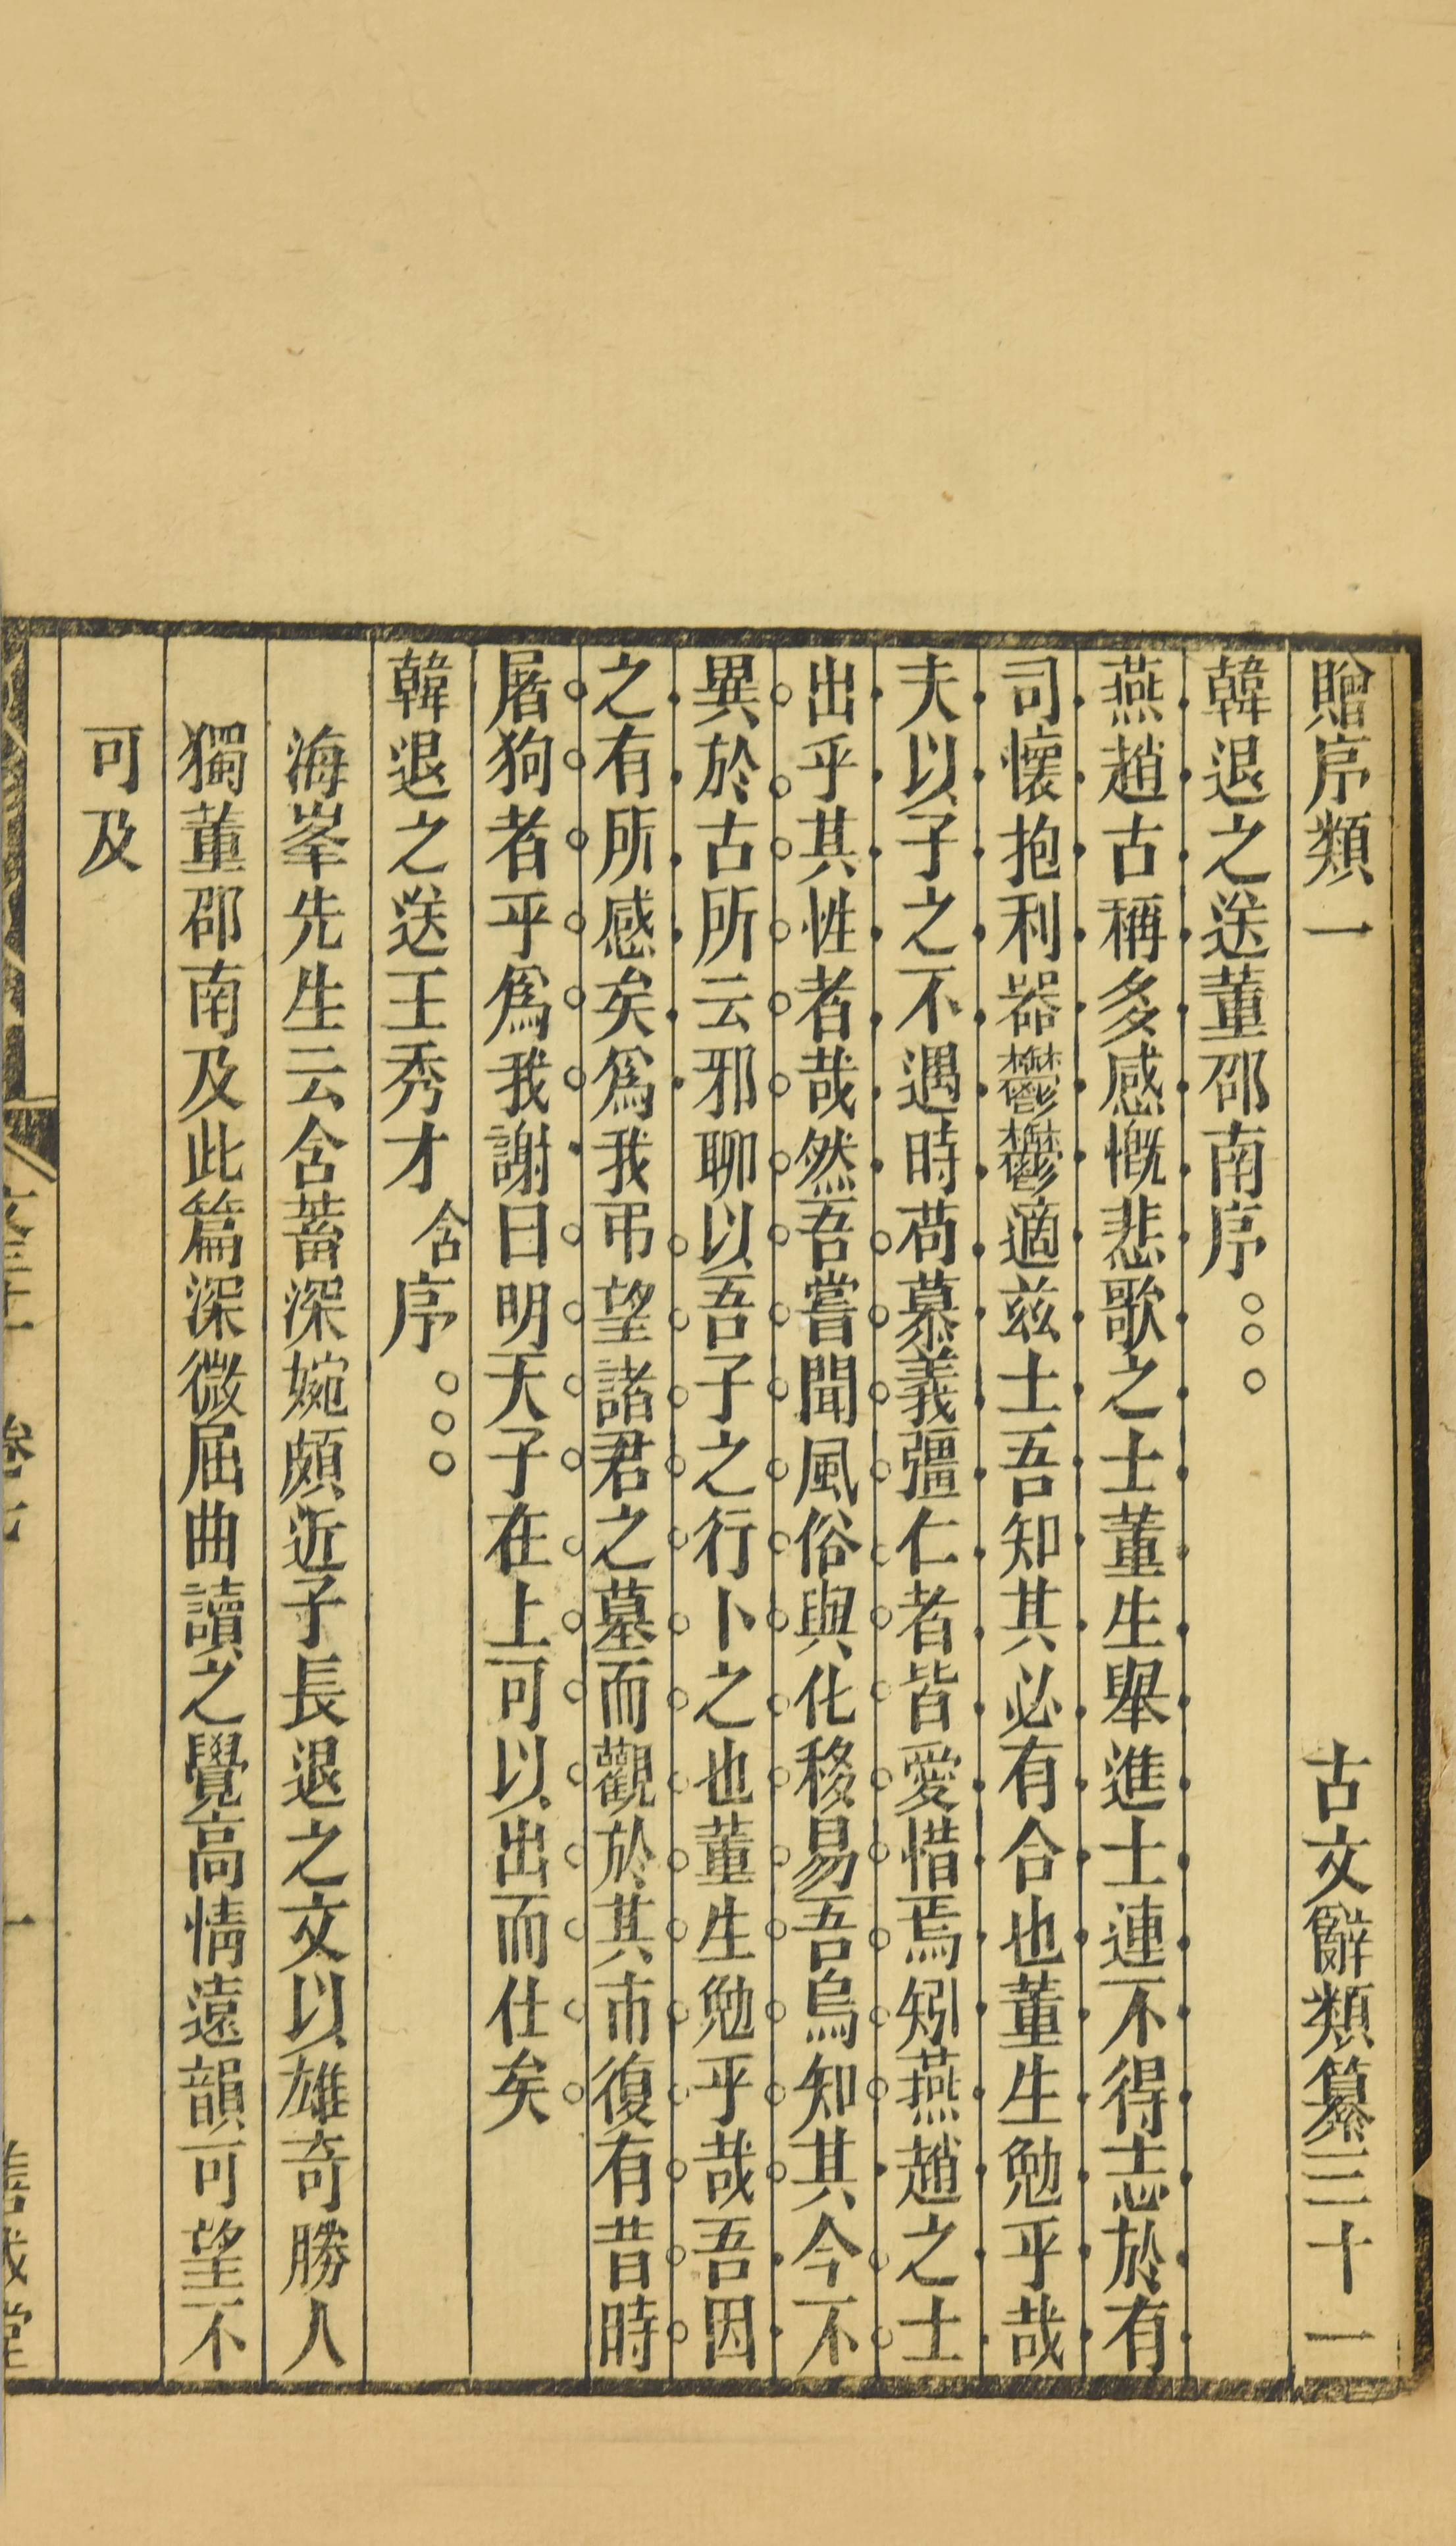 贈序類一　古文辭類纂三十一
韓退之送董邵南序○○○
燕趙古稱多感慨悲歌之士董生舉進士連不得志於有
司懷抱利器鬱鬱適兹土吾知其必有合也董生勉乎哉
夫以子之不遇時苟慕義彊仁者皆愛惜焉矧燕趙之士
出乎其性者哉然吾嘗聞風俗與化移易吾烏知其今不
異於古所云邪聊以吾子之行卜之也董生勉乎哉吾因
之有所感矣爲我弔望諸君之墓而觀於其市復有昔時
屠狗者乎爲我謝曰明天子在上可以出而仕矣
韓退之送王秀才含序○○○
海峯先生云含蓄深婉頗近子長退之文以雄奇勝人
獨董邵南及此篇深微屈曲讀之覺高情遠韻可望不
可及